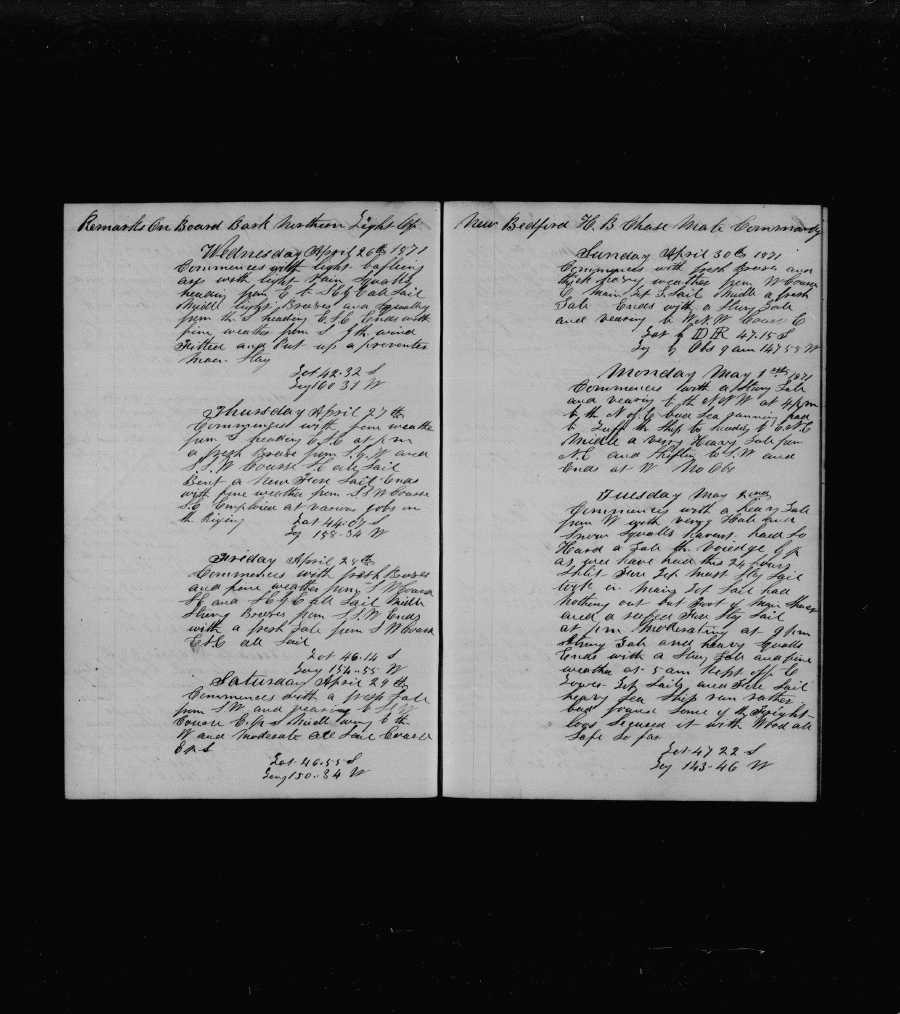 Remarks On Board Bark Northern Light Of
Wednesday April 26th 1871
Commences with light bafling
airs with light Rain Squally
heading from E to S.E all Sail
Middle light Breeses and Squally
from the S heading E.S.E Ends with
fine weather from S the wind
Fitted and Put up a preventer
Main Stay
Lat 42.32 S
Lng 160 31 W
Thursday April 27th
Commences with fine weather
from S heading E.S.E at P.M
a fresh Breese from S.W and
S.S.W Course S.E all Sail
Bent a New Fore Sail Ends
with fine weather from S S W Course
S.E Employed at various jobs in
the Riging
Lat 44.07 S
Lg 158.34 W
Friday April 28th
Commences with fresh Breeses
and fine weather from S W Course
S.E and S.E all Sail Middle
Strong Breeses from S.S.W Ends
with a fresh Gale from S W Course
E.S.E all Sail
Lat 46.14 S
Long 154-55 W
Saturday April 29th
Commences with a fresh Gale
from S W and veering to S.S.W
Course E.p.S Middle to the
W and Moderate all Sail Course
E.p.S
Lat-46.55 S
Leng 150-34 W
New Bedford H. B Chase Mate Commandg
Sunday April 30th 1871
Commences with fresh Breeses and
thick foggy weather from W Course
E Main Top G.Sail Middle a fresh
Gale Ends with a Strong Gale
and veering to W.N.W Course E
Lat by D R 47.15 S
Lg by Obs 9 am 147 55 W
Monday May 1st 1871
Commences with a Strong Gale
and vearing to the N N W at 4 pm
to the N of E bad Sea running had
to Luff the Ship to heading to E.N.E
Middle a Very Heavy Gale from
N.E and Shifting to S.W and
Ends at W No Obs
Tuesday May 2nd
Commences with a heavy Gale
from W with very Hail and
Snow Squalls havent had So
Hard a Gale the Voiedge
as wee have had this 24 hours
Split Fore Top Mast Stg Sail
took in Main Top Sail had
Nothing out but Foot of Main Spencer
and a reefed Fore Stg Sail
at P.M. Moderating at 9 pm
Strong Gale and heavy Squalls
Ends with a Strong Gale and fine
weather at 5 am Kept off E
Lower Top Sails and Fore Sail
heavy Sea Ship run rather
bad found Some of the Freight
loos Secured it with Wood all
Safe So far
Lat-47 22 S
Lng 143-46 W